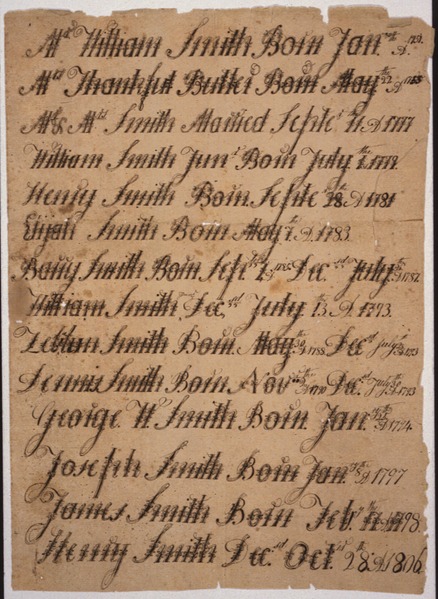 Mr William Smith Born Jan
Mrs Thankful Butler Born May
Mr & Mrs Smith Married Septer 11 AD 1777
William Smith Junr Born July
Henry Smith Born Septe 28 AD 1781
Elijah Smith Born May 7 AD 1783.
Batty Smith Born Sept Dec July
William Smith Decsd July 13 AD 1793.
Smith Born May Decsd July
Dennis Smith Born Nov Decsd July
George W Smith Born Jan AD 1794
Joseph Smith Born Jan AD 1797
James Smith Born Feb 1798.
Henry Smith Decsd Oct 28 AD 1806